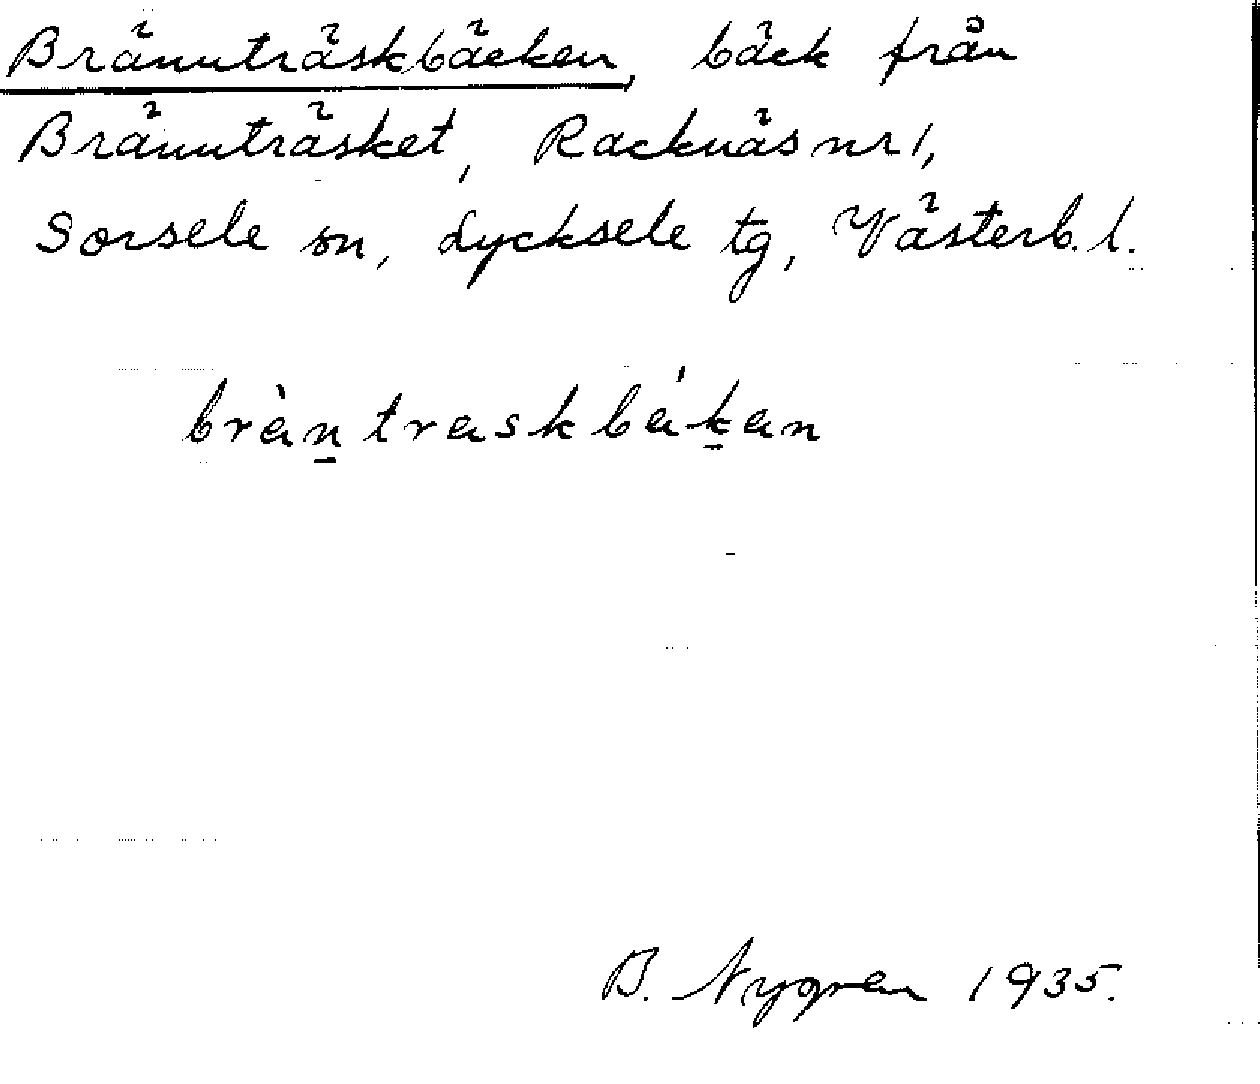 Brännträskbäcken, bäck från
Brännträsket, Racknäs nr 1,
Sorsele sn, Lycksele tg, Västerb. l.
brànt̲raskbák̲an
B. Nygren 1935.